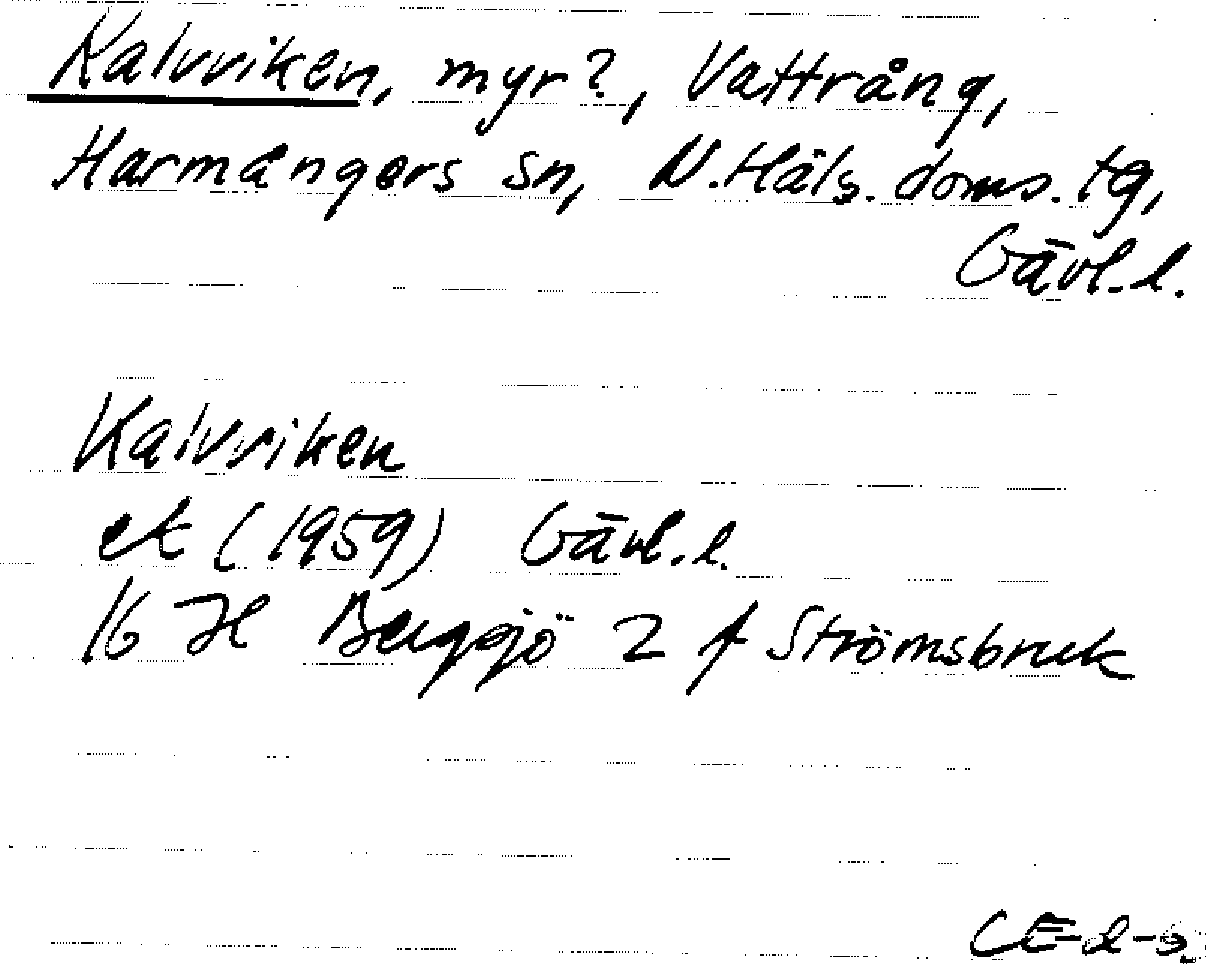 Kalvviken, myr?, Vattrång,
Harmångers sn, N.Häls. doms. tg,
Gävl.l.
Kalvviken
ek (1959) Gävl.l.
16 H Bergsjö 2 f Strömsbruk